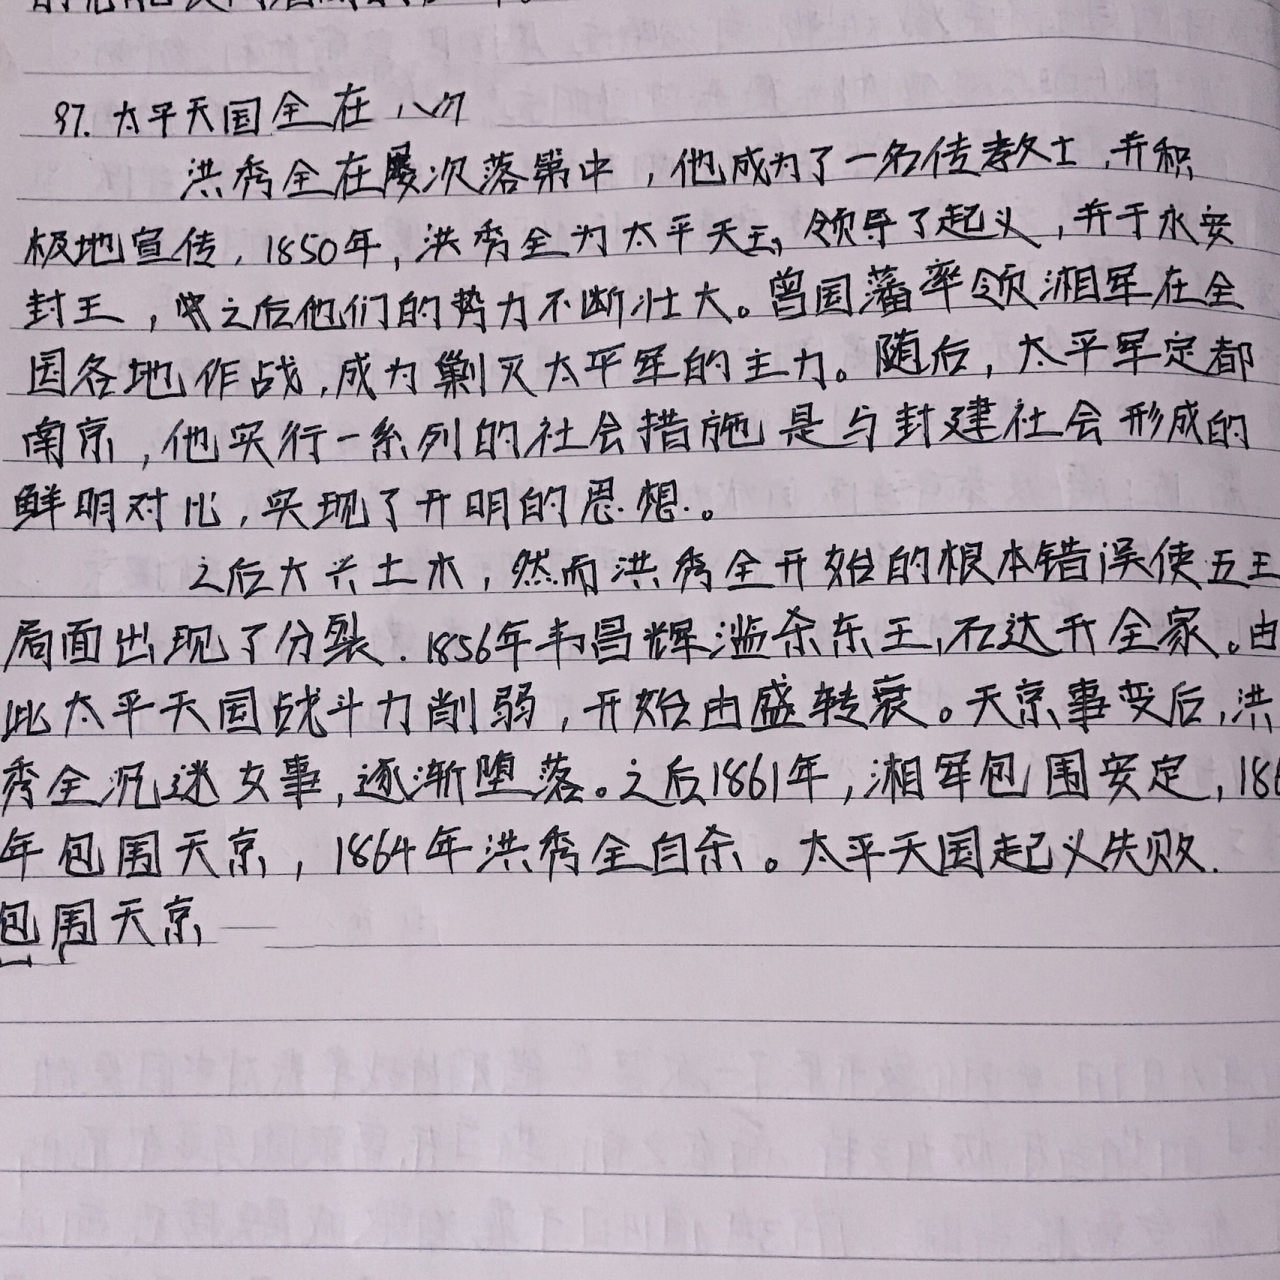 97. 太平天国全在八月
洪秀全在屡次落第中，他成为了一名传教士，并积
极地宣传，1850年，洪秀全为太平天王，领导了起义，并于永安
封王，之后他们的势力不断壮大。曾国藩率领湘军在全
国各地作战，成为剿灭太平军的主力。随后，太平军定都
南京，他实行一系列的社会措施是与封建社会形成的
鲜明对比，实现了开明的思想。
之后大兴土木，然而洪秀全开始的根本错误使五王
局面出现了分裂．1856年韦昌辉滥杀东王，石达开全家。由
此太平天国战斗力削弱，开始由盛转衰。天京事变后，洪
秀全沉迷女事，逐渐堕落。之后1861年，湘军包围安定，186
年包围天京，1864年洪秀全自杀。太平天国起义失败．
包围天京